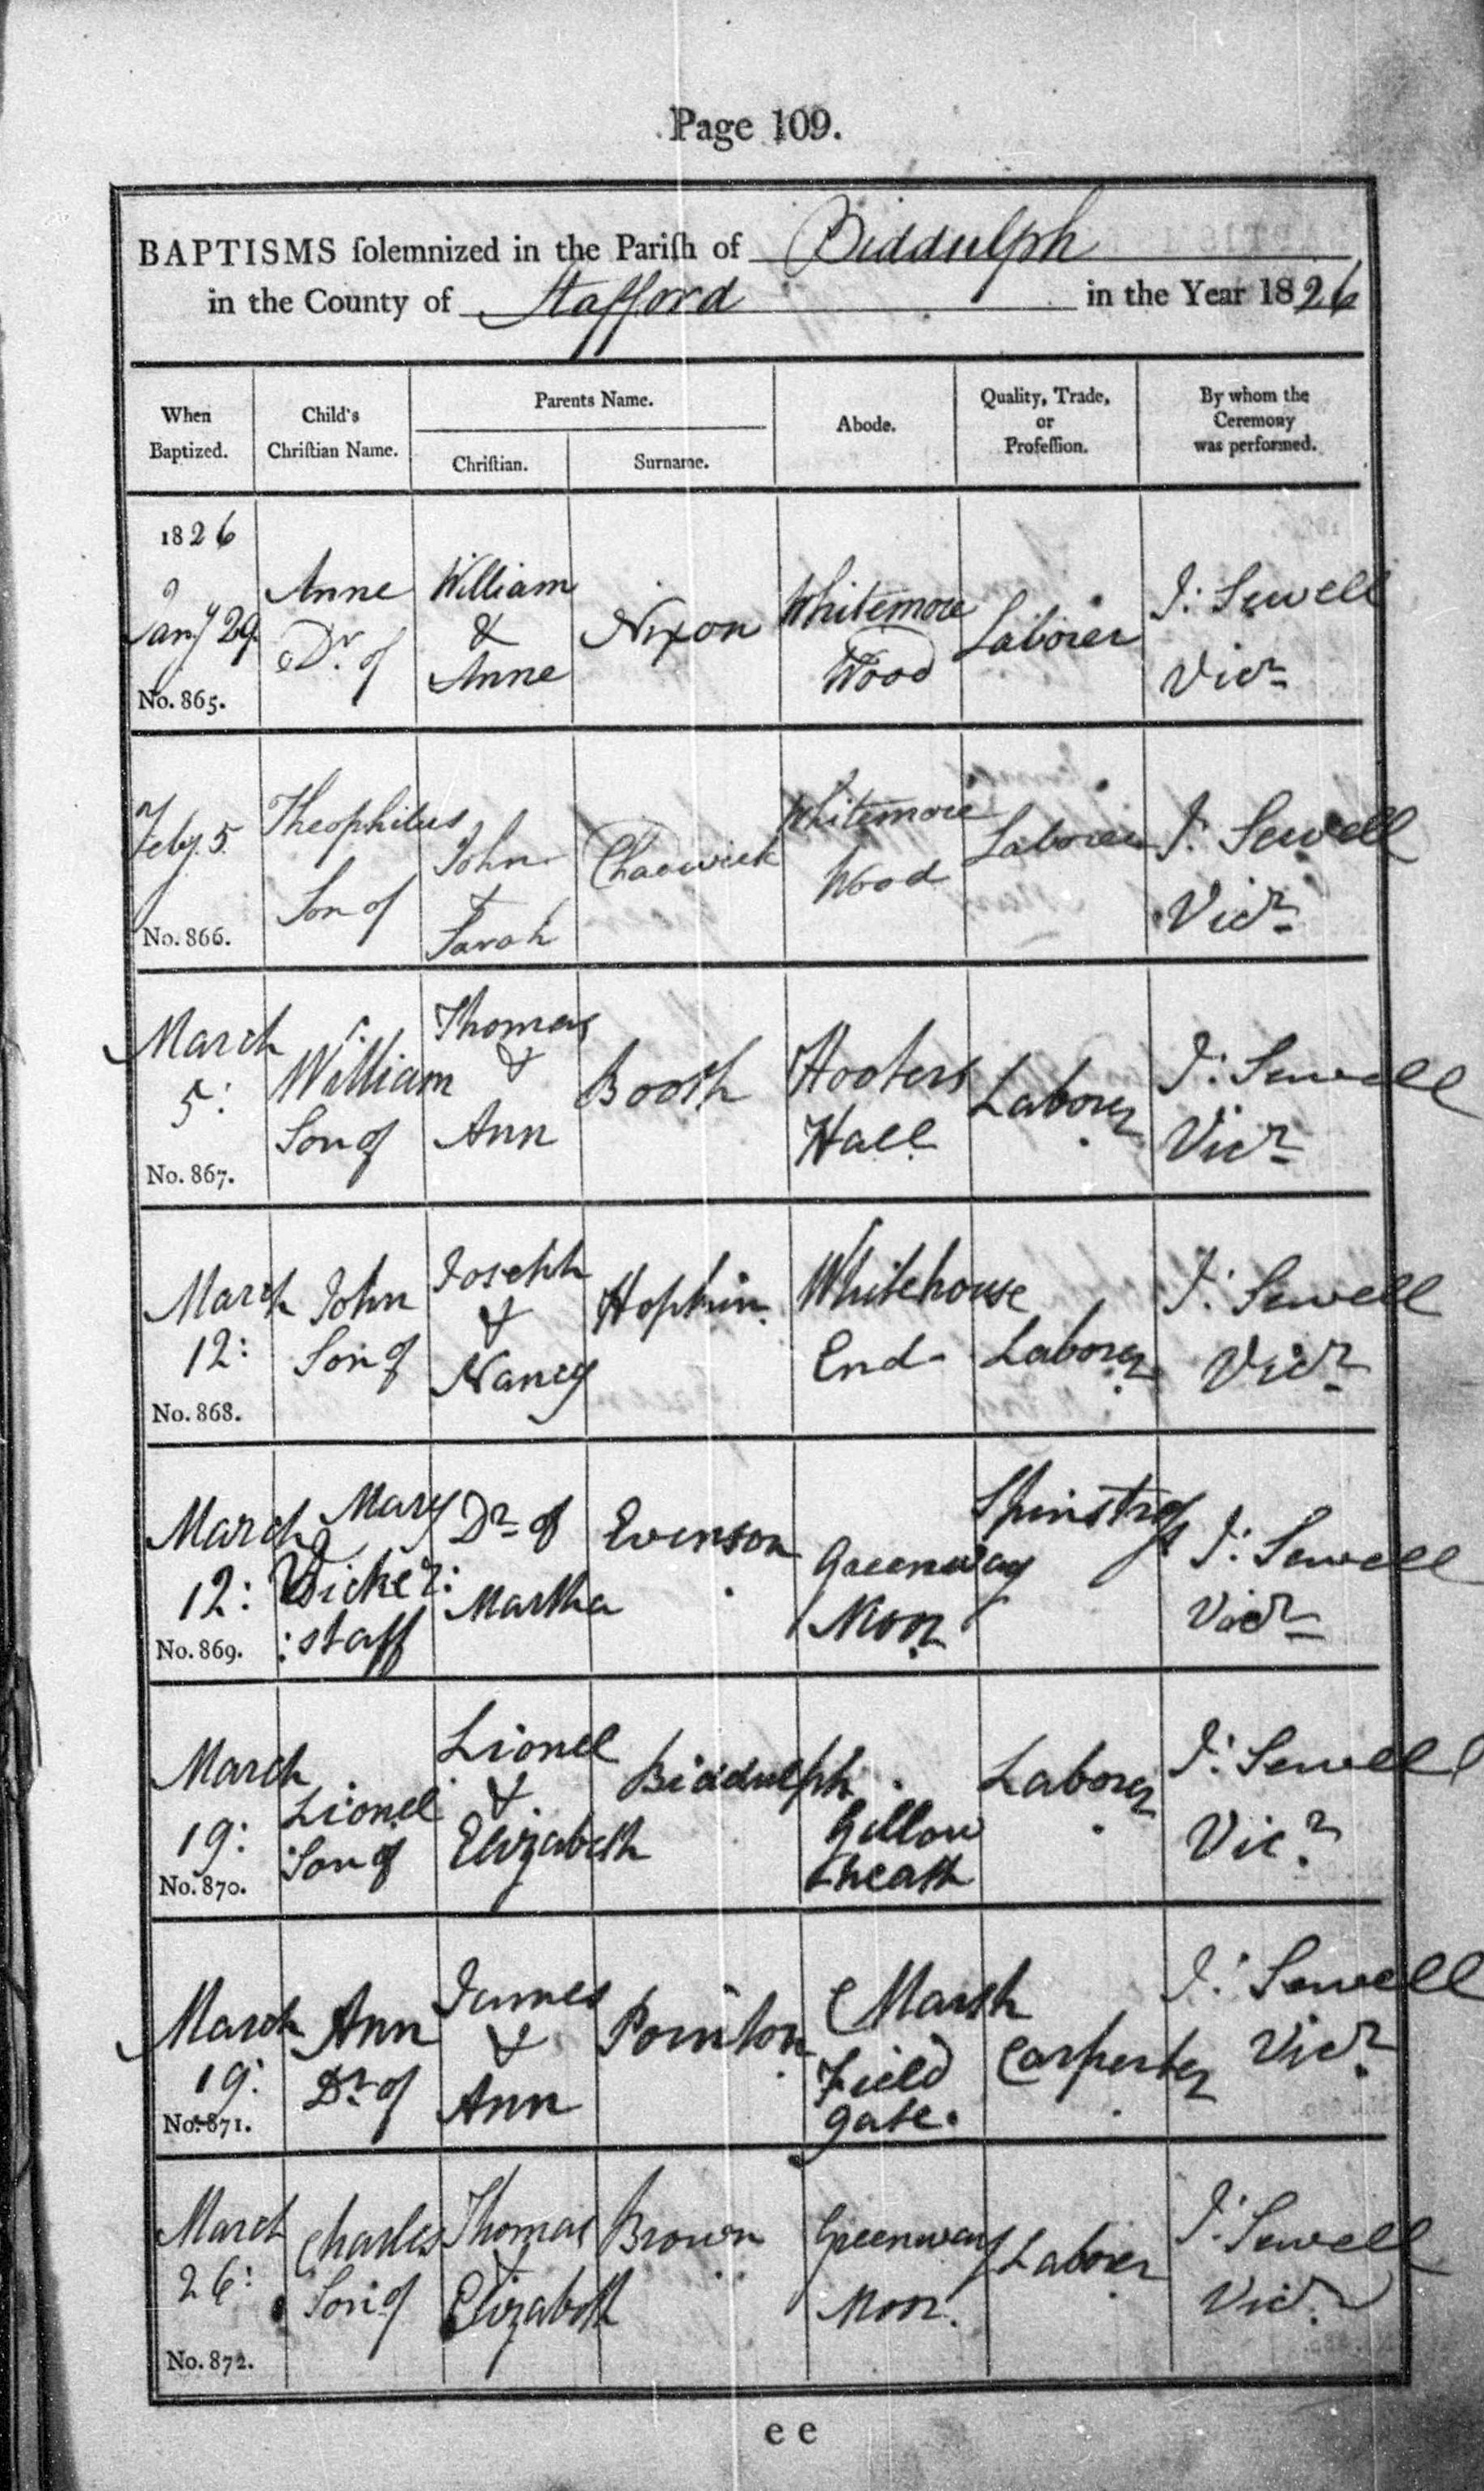 Page 109.
BAPTISMS solemnized in the Parish of Biddulph
in the County of Stafford in the Year 1826
When Baptized.
Child's Christian Name.
Parents Name.
Christian.
Surname.
Abode.
Quality, Trade, or Profession.
By whom the Ceremony was performed.
1826
Jany 29
No. 865.
Anne
Dr. of
William
&
Anne
Nixon
Whitemore
Wood
Laborer
J: Sewell
Vicr
Feby. 5
No. 866.
Theophilus
Son of
John
&
Sarah
Chadwick
Whitemore
Wood
Laborer
J: Sewell
Vicr
March
5:
No. 867.
William
Son of
Thomas
&
Ann
Booth
Hooters
Hall
Laborer
J: Sewell
Vicr
March
12:
No. 868.
John
Son of
Joseph
&
Nancy
Hopkin
Whitehouse
End
Laborer
J: Sewell
Vicr
March
12:
No. 869.
Mary
Bicker:
:staff
Dr of
Martha
Evenson
Greenway
Moor
Spinster
J: Sewell
Vicr
March
19:
No. 870.
Lionel
Son of
Lionel
&
Elizabeth
Biddulph
Gillow
heath
Laborer
J: Sewell
Vicr
March
19:
No. 871.
Ann
Dr of
James
&
Ann
Pointon
Marsh
Field
gate.
Carpenter
J: Sewell
Vicr
March
26:
No. 872.
Charles
Son of
Thomas
&
Elizabeth
Brown
Greenway
Moor.
Laborer
J: Sewell
Vicr
e e